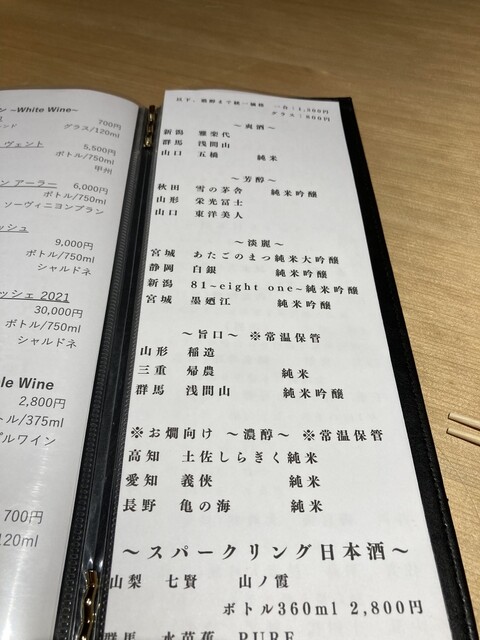 ~White Wine~
700円
グラス/120ml
ヴェント 5,500円
ボトル/750ml
甲州
アーラー 6,000円
ボトル/750ml
ソーヴィニヨンブラン
9,000円
ボトル/750ml
シャルドネ
ッシェ 2021
30,000円
ボトル/750ml
シャルドネ
le Wine
2,800円
トル/375ml
プルワイン
700円
120ml
以下、銘柄まで統一価格 一合:1,500円
グラス:800円
~爽酒~
新潟 雅楽代
群馬 浅間山
山口 五橋 純米
~芳醇~
秋田 雪の茅舎 純米吟醸
山形 栄光冨士
山口 東洋美人
~淡麗~
宮城 あたごのまつ 純米大吟醸
静岡 白銀 純米吟醸
新潟 81~eight one~ 純米吟醸
宮城 墨廼江 純米吟醸
~旨口~ ※常温保管
山形 稲造
三重 帰農 純米
群馬 浅間山 純米吟醸
※お燗向け ~濃醇~ ※常温保管
高知 土佐しらぎく 純米
愛知 義侠 純米
長野 亀の海 純米
~スパークリング日本酒~
山梨 七賢 山ノ霞
ボトル360ml 2,800円
群馬 水芭蕉 PURE